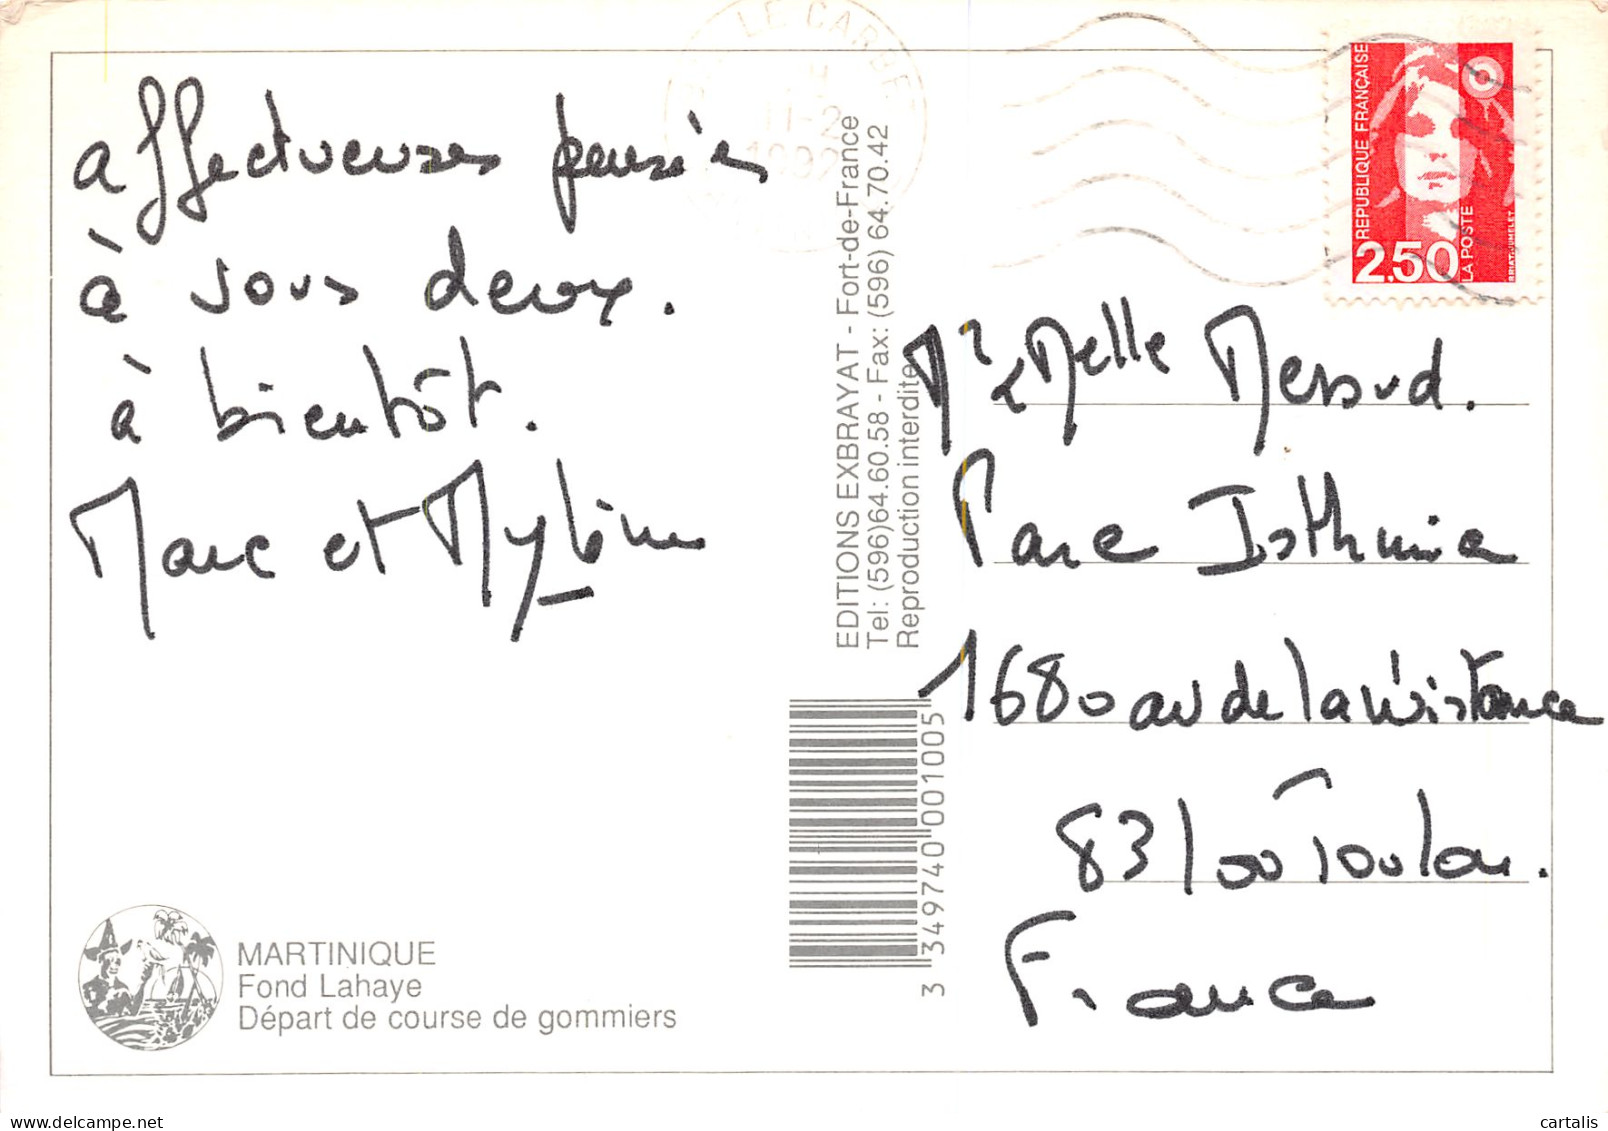 affectueuses pensées
à vous deux.
à bientôt.
Marc et Mylène
MARTINIQUE
Fond Lahaye
Départ de course de gommiers
EDITIONS EXBRAYAT - Fort-de-France
Tel: (596)64.60.58 - Fax: (596) 64.70.42
Reproduction interdite
3 349740 001005
LE CARBET
11-2
1992
REPUBLIQUE FRANÇAISE
2,50
LA POSTE
BRIAT-JUMELET
Mr & Melle Messud.
Parc Isthmia
1680 av de la résistance
83100 Toulon.
France
cartalis